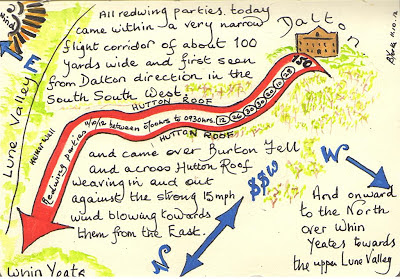 All redwing parties today
came within a very narrow
flight corridor of about 100
yards wide and first seen
from Dalton direction in the
South South West.
Dalton
Wind
E
Lune Valley
HUTTON ROOF
150
Redwing parties 9/10/12 between 0700hrs to 0930hrs.
HUTTON ROOF
and came over Burton Fell
and across Hutton Roof
weaving in and out
against the strong 15mph
wind blowing towards
them from the East.
SSW
W
N
And onward
to the North
over Whin
Yeates towards
the upper Lune Valley
Whin Yeats